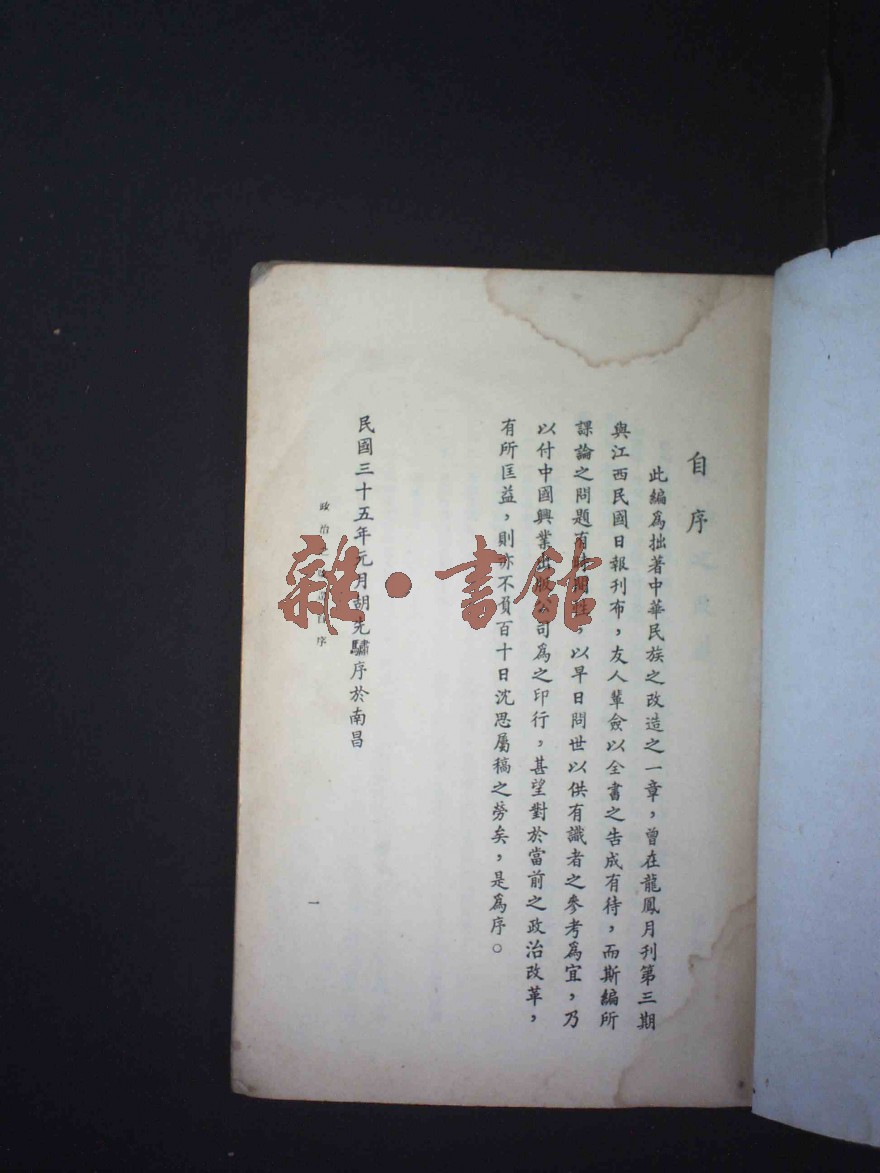 自序
此編爲拙著中華民族之改造之一章，曾在龍鳳月刊第三期
與江西民國日報刊布，友人輩僉以全書之告成有待，而斯編所
課論之問題有時間性，以早日問世以供有識者之參考爲宜，乃
以付中國興業出版公司爲之印行，甚望對於當前之政治改革，
有所匡益，則亦不負百十日沈思屬稿之勞矣，是爲序。
民國三十五年元月胡先驌序於南昌
政治之 自序
一
雜·書館